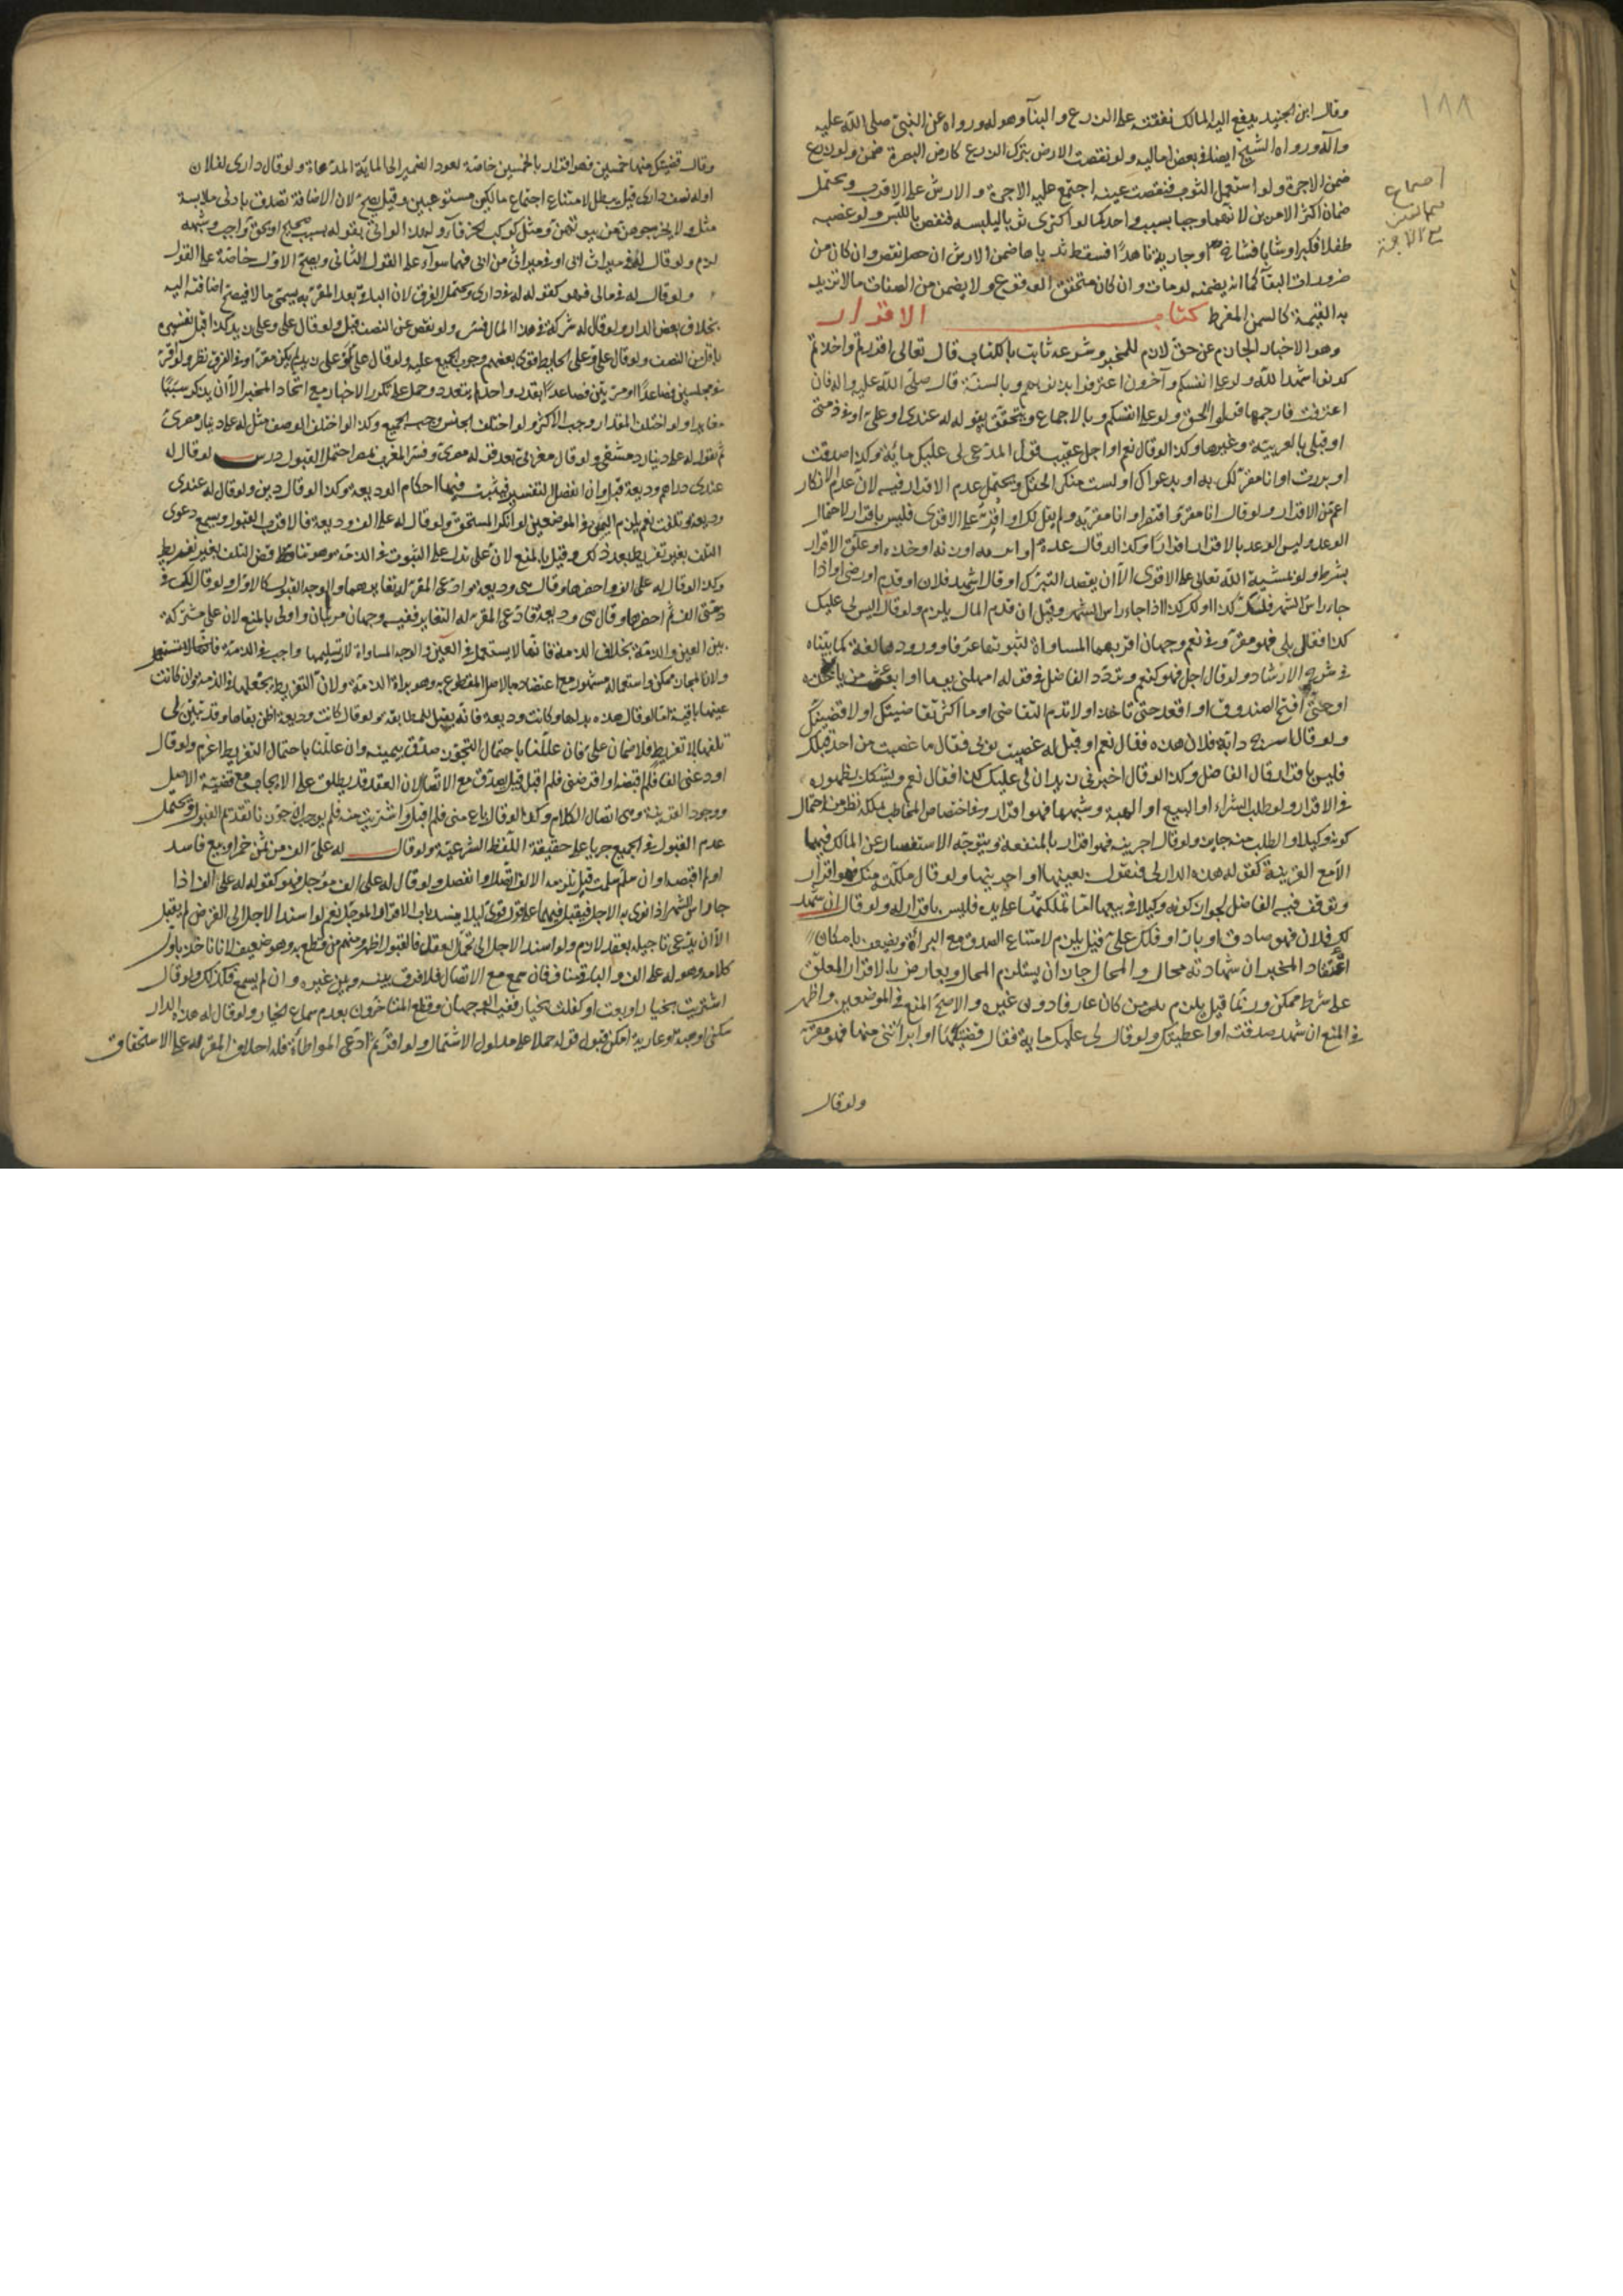 ١٨٨
وقال ابن الجنيد يدفع اليه المالك نفقته على الزرع والبنآء وهو له ورواه عن النبي صلى الله عليه
وآله ورواه الشيخ ايضا في بعض اماليه ولو نقصت الارض بترك الزرع كارض البصرة ضمن ولو زرع
ضمن الاجرة ولو استعمل الثوب فنقصت عينه اجتمع عليه الاجرة والارش على الاقرب ويحتمل
ضمان اكثر الامرين لانهما وجبا بسبب واحد كما لو اكترى ثوبا ليلبسه فنقص باللبس ولو غصبه
طفلا فكبر او شابا فشاخ او جارية ناهدا فسقط ثدياها ضمن الارش ان حصل نقص وان كان من
ضرورات البقآء كما انه يضمنه لو مات وان كان متحقق الوقوع ولا يضمن من الصفات ما لا تزيد
به القيمة كالسمن المفرط كتاب الاقرار
وهو الاخبار الجازم عن حق لازم للمخبر وشرعه ثابت بالكتاب قال تعالى اقررتم واخذتم
كونوا شهداء لله ولو على انفسكم وآخرون اعترفوا بذنوبهم وبالسنة قال صلى الله عليه واله فان
اعترفت فارجمها قولوا الحق ولو على انفسكم وبالاجماع ويتحقق بقوله له عندي او على او في ذمتي
او قبلي بالعربية وغيرها وكذا لو قال نعم او اجل عقيب قول المدعي لي عليك مائة وكذا صدقت
او بررت او انا مقر لك به او بدعواك او لست منكر الحقك ويحتمل عدم الاقرار فيه لان عدم الانكار
اعم من الاقرار ولو قال انا مقر واقتصر او انا مقر به ولم يقل لك او اقر على الاقوى فليس باقرار لاحتمال
الوعد وليس الوعد بالاقرار اقرارا وكذا لو قال عده او زنه او خذه او علق الاقرار
بشرط ولو بمشية الله تعالى على الاقوى الا ان يقصد التبرك او قال ان شهد فلان او قدم او رضي او اذا
جاء راس الشهر فلك كذا او لك كذا اذا جاء راس الشهر وقيل ان قدم المال يلزم ولو قال اليس لي عليك
كذا فقال بلى فهو مقر وفي نعم وجهان اقربهما المساواة لثبوتها عرفا وورودها لغة كما بيناه
في شرح الارشاد ولو قال اجل فهو كنعم وتردد الفاضل في قوله امهلني يوما او ابعث من ياخذه
او حتى افتح الصندوق او اقعد حتى تاخذ او لا تدم التقاضي او ما اكثر تقاضيك او لاقضينك
ولو قال اسرج دابة فلان هذه فقال نعم او قيل له غصبت ثوبي فقال ما غصبت من احد قبلك
فليس باقرار قال الفاضل وكذا لو قال اخبرني زيد ان لي عليك كذا فقال نعم ويشكل بظهوره
في الاقرار ولو طلب الشراء او البيع او الهبة وشبهها فهو اقرار وفي اختصاص المخاطب بملكه نظر من احتمال
كونه وكيلا والطلب منه جايز ولو قال اجرنيه فهو اقرار بالمنفعة ويتوجه الاستفسار عن المالك فيهما
الا مع القرينة كقوله هذه الدار لي فيقول بعينها او اجرنيها ولو قال ملكته منك فهو اقرار
وتوقف فيه الفاضل لجواز كونه وكيلا في بيعها اما تملكتها على يده فليس باقرار له ولو قال ان شهد
لك فلان فهو صادق او بار او فلك علي قيل يلزم لامتناع الصدق مع البرآة ويضعف بامكان
اعتقاد المخبر ان شهادته محال والمحال جاز ان يستلزم المحال ويعارض بالاقرار المعلق
على شرط ممكن وربما قيل يلزم من كان عارفا دون غيره والاصح المنع في الموضعين واظهر
في المنع ان شهد صدقته او اعطيتك ولو قال لي عليك ماية فقال قضيتكها او ابرأتني منها فهو مقر
ولو قال
وقال قضيتك منها خمسين فهو اقرار بالخمسين خاصة لعود الضمير الى الماية المدعاة ولو قال داري لفلان
او له نصف داري قيل يبطل لامتناع اجتماع مالكين مستوعبين وقيل يصح لان الاضافة تصدق بادنى ملابسة
مثل ولا يخرجوهن من بيوتهن ومثل كوكب الخرقآء ولو قال بسبب صحيح او بحق واجب وشبهه
لزم ولو قال له في ميراث ابي او في ميراثي من ابي فهما سوآء على القول الثاني ويصح الاول خاصة على القول
ولو قال له في مالي فهو كقوله له في داري ويحتمل الفرق لان الباقي بعد المقر به يسمى مالا فيصح اضافته اليه
بخلاف بعض الدار ولو قال له شركة في هذا المال فسر ولو نقص عن النصف قبل ولو قال علي وعلى زيد كذا قبل تفسيره
باقل من النصف ولو قال علي وعلى الحايط قوى بعضهم وجوب الجميع عليه ولو قال علي او على زيد لم يكن مقرا وفي الفرق نظر ولو اقر
في مجلسين فصاعدا او مرتين فصاعدا بقدر واحد لم يتعدد وحمل على تكرر الاخبار مع اتحاد المخبر الا ان يذكر سببا
مغايرا ولو اختلف المقدار وجب الاكثر ولو اختلف الجنس وجب الجميع وكذا لو اختلف الوصف مثل له علي دينار مصري
ثم يقول له علي دينار دمشقي ولو قال مغربي بعد قوله مصري وفسر المغرب بمصر احتمل القبول درس لو قال له
عندي دراهم وديعة قبل وان انفصل التفسير فيثبت فيها احكام الوديعة وكذا لو قال دين ولو قال له عندي
وديعة وتلفت نعم يلزم اليمين في الموضعين لو انكر المستحق ولو قال له علي الف وديعة فالاقرب القبول ويسمع دعوى
التلف بغير تفريط بعد ذلك وقيل بالمنع لان علي تدل على الثبوت في الذمة وهو تناقض التلف بغير تفريط
وكذا لو قال له علي الف واحضرها وقال هي وديعة وادعى المقر له تغايرهما والوجه القبول كالاول ولو قال لك في
ذمتي الف ثم احضرها وقال هي وديعة وادعى المقر له التغاير ففيه وجهان مرتبان واولى بالمنع لان علي مشتركة
بين العين والذمة بخلاف الذمة فانها لا يستعمل في العين والوجه المساواة لان تسليمها واجب في الذمة
ولان المجاز ممكن واستعماله مشهور مع اعتضاده بالاصل المقطوع به وهو براة الذمة ولان التفريط يجعلها في الذمة وان كانت
عينها باقية اما لو قال هذه بدلها وكانت وديعة فانه يقبل ولو قال كانت وديعة اظن بقاها وقد تبين لي
تلفها بلا تفريط فلا ضمان علي فان عللنا باحتمال التجوز صدق بيمينه وان عللنا باحتمال التفريط اغرم ولو قال
اودعني الفا فلم اقبضه او اقرضني فلم اقبل قيل يصدق مع الاتصال لان العقد قد يطلق على الايجاب مع قضية الاصل
ووجود القرينة وهي اتصال الكلام وكذا لو قال باع مني فلم اقبل واشتريت منه فلم يوجب ان جوزنا تقدم القبول ويحتمل
عدم القبول في الجميع جريا على حقيقة اللفظ الشرعية ولو قال له علي الف من ثمن خمر او بيع فاسد
او لم اقبضه او ان سلم سلمت قيل تلزمه الالف اتصل او انفصل ولو قال له علي الف مؤجل فهو كقوله له علي الف اذا
جاء راس الشهر اذا نوى به الاجل فيقبل فيهما على قول قوي ليلا ينسد باب الاقرار بالمؤجل نعم لو اسند الاجل الى القرض لم يقبل
الا ان يدعي تاجيله بعقد لازم ولو اسند الاجل الى تحمل العقل فالقبول اظهر ومنهم من قطع به وهو ضعيف لانا ناخذ باول
كلامه وهو له علي الف والباقي مناف فان سمع مع الاتصال فلا فرق بينه وبين غيره وان لم يسمع فكذلك ولو قال
اشتريت بخيار او بعت او كفلت بخيار ففيه الوجهان وقطع المتاخرون بعدم سماع الخيار ولو قال له هذه الدار
سكنى او هبة او عارية امكن قبول قوله حملا على مدلول الاشتمال ولو اقر ثم ادعى المواطاة فله احلاف المقر له على الاستحقاق